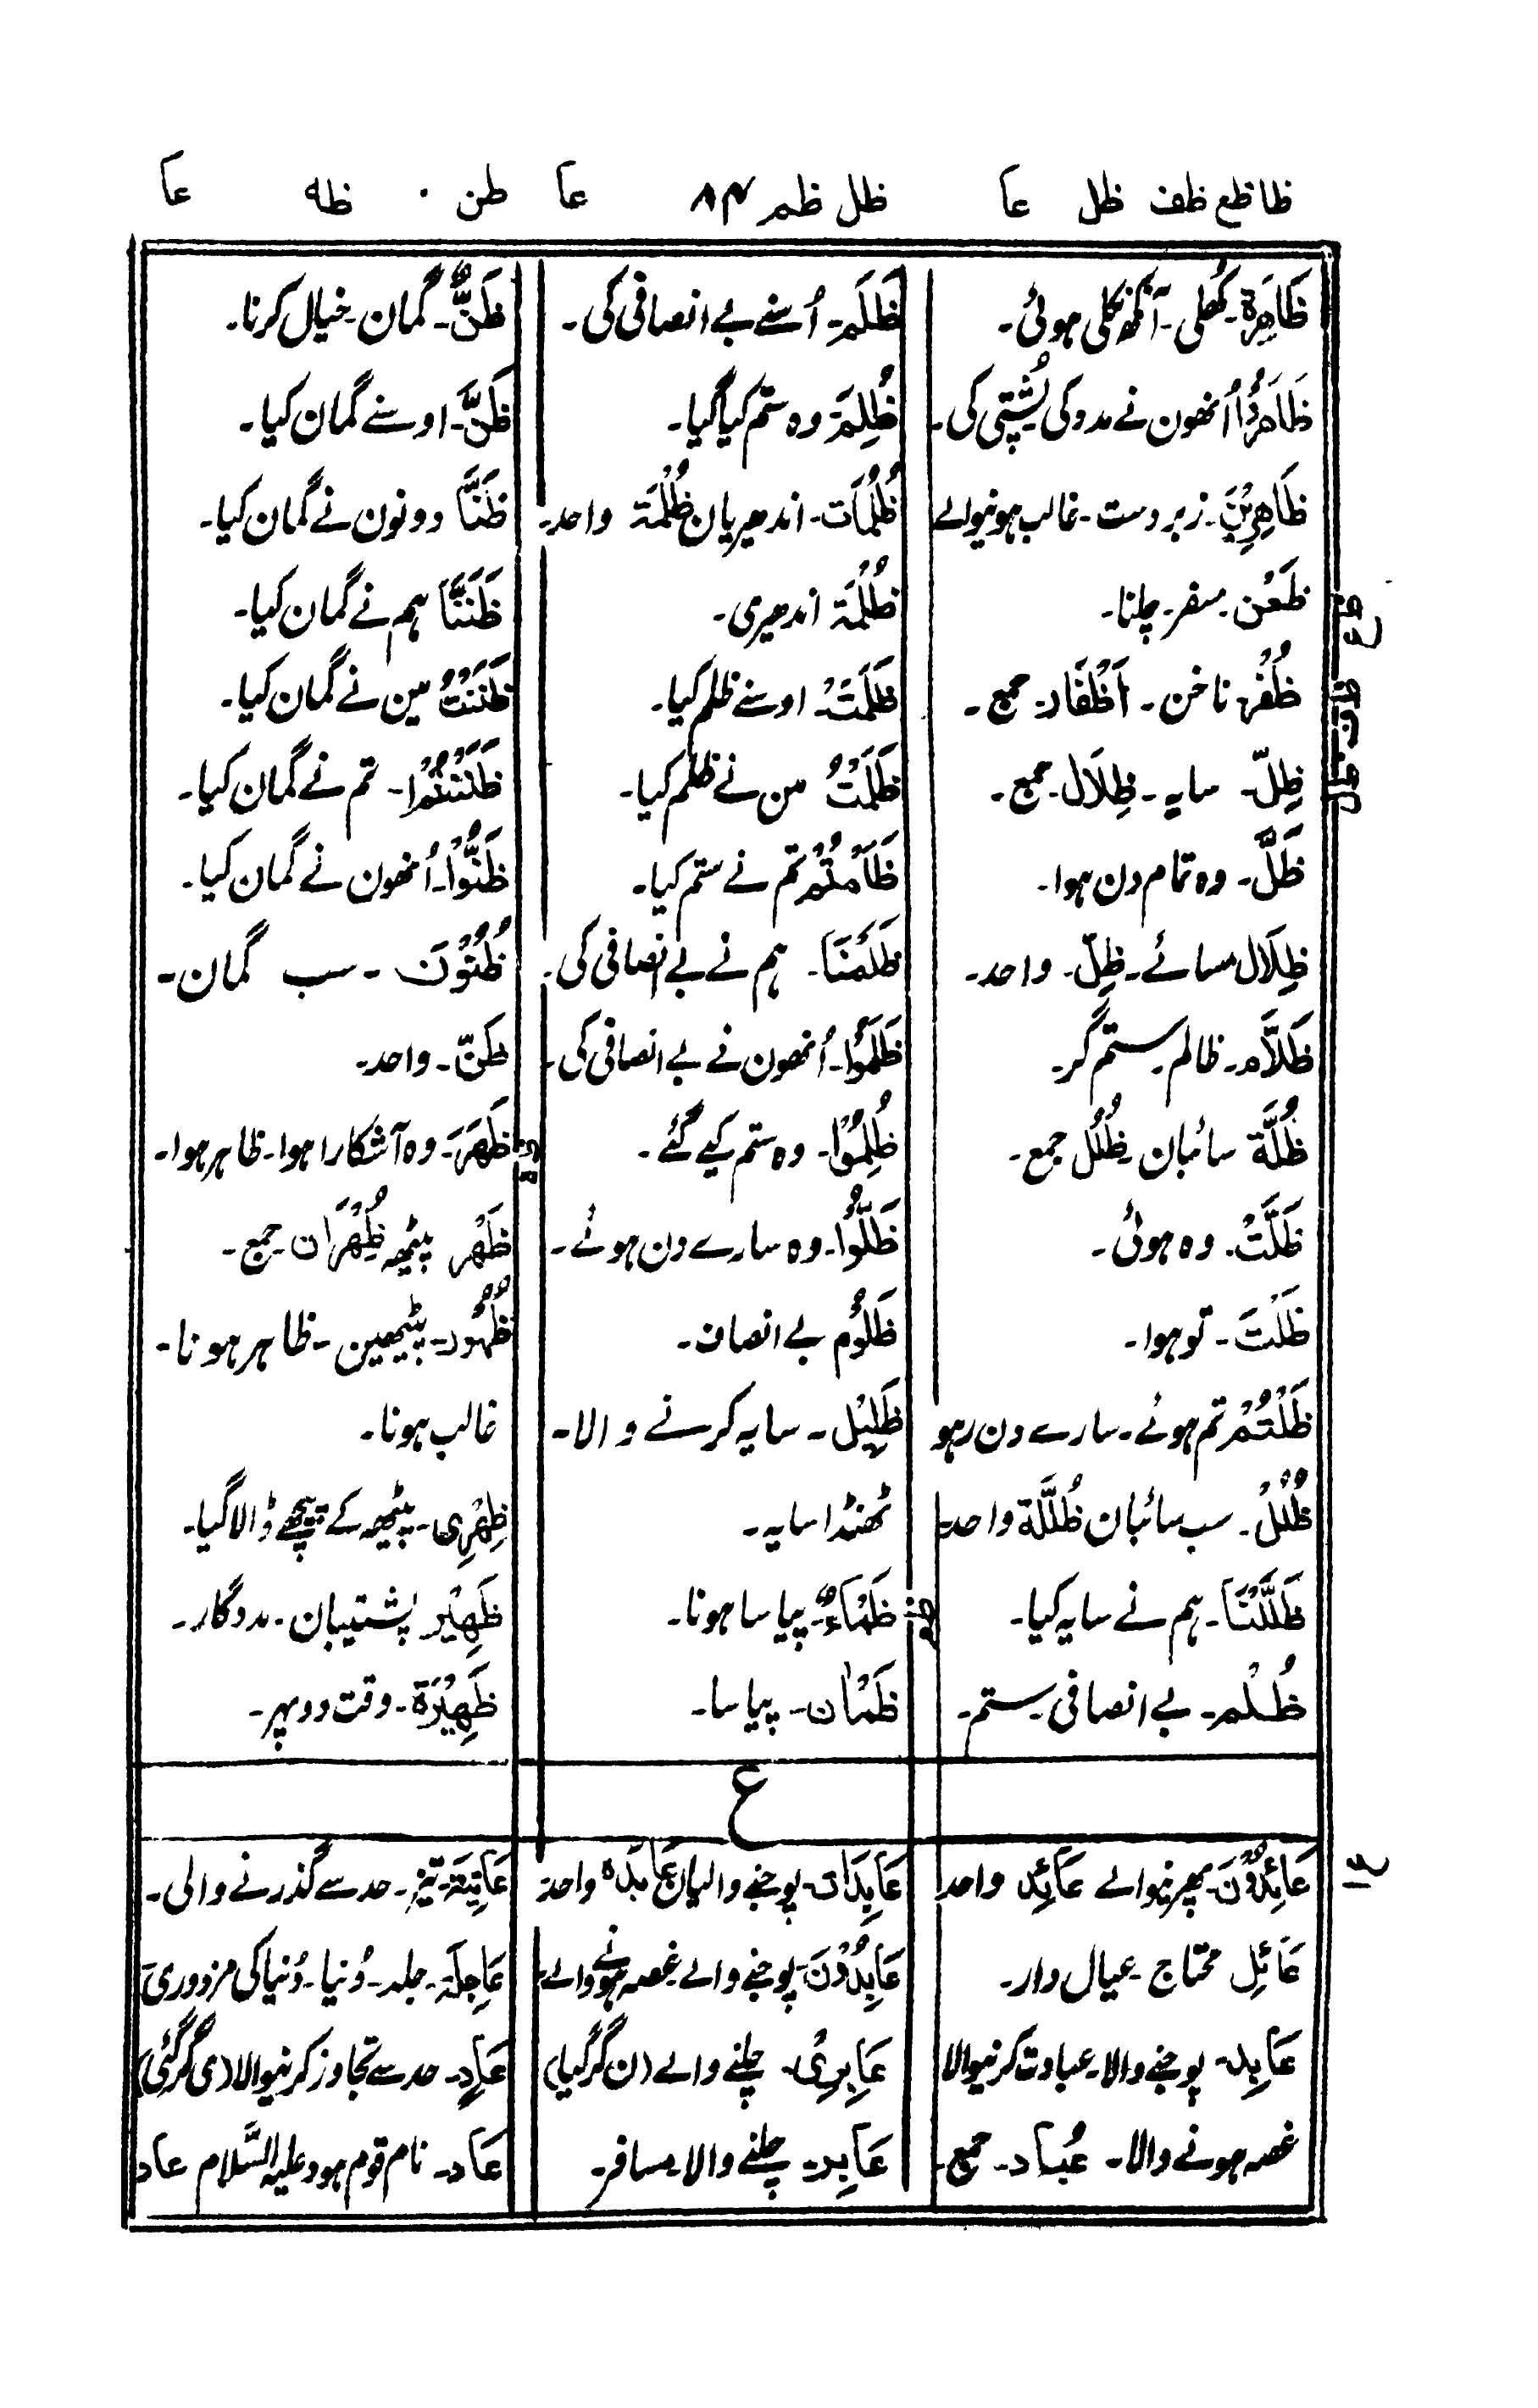 ظا ظع ظف ظل عا ظل ظم ۸۴ عا ظن ظه عا
ظَاهِرَة۔ کُھلی۔ آنکھ نکلی ہوئی۔
ظَاهَرُوْا اُنھون نے مدد کی پُشتی کی۔
ظَاهِرِيْنَ۔ زبردست۔ غالب ہونیوالے
ظَعْن۔ سفر۔ چلنا۔
ظُفُر ناخن۔ اَظْفَار۔ جمع۔
ظِلّ۔ سایہ۔ ظِلَال۔ جمع۔
ظَلَّ۔ وہ تمام دن ہوا۔
ظِلَال سائے۔ ظِلّ۔ واحد۔
ظَلَّام۔ ظالم۔ ستم گر۔
ظُلَّة سائبان۔ ظُلَل جمع۔
ظَلَّتْ۔ وہ ہوئی۔
ظَلْتَ۔ تو ہوا۔
ظَلْتُمْ تم ہوئے۔ سارے دن رہو
ظُلَلُ۔ سب سائبان ظُلَّلَة واحد۔
ظَلَّلْنَا۔ ہم نے سایہ کیا۔
ظُلْم۔ بے انصافی۔ ستم۔
ظَلَمَ۔ اُسنے بے انصافی کی۔
ظُلِمَ وہ ستم کیا گیا۔
ظُلُمَات۔ اندھیریان ظُلْمَة واحد۔
ظُلْمَة اندھیری۔
ظَلَمَتْ۔ اوسنے ظلم کیا۔
ظَلَمْتُ مین نے ظلم کیا۔
ظَلَمْتُمْ تم نے ستم کیا۔
ظَلَمْنَا۔ ہم نے بے انصافی کی۔
ظَلَمُوْا۔ اُنھون نے بے انصافی کی۔
ظُلِمُوْا۔ وہ ستم کیے گئے۔
ظَلُّوْا۔ وہ سارے دن ہوئے۔
ظَلُوْم بے انصاف۔
ظَلِيْل۔ سایہ کرنے والا۔
ٹھنڈا سایہ۔
ظَمَاءٌ۔ پیاسا ہونا۔
ظَمْاٰن۔ پیاسا۔
ظَنٌّ۔ گمان۔ خیال کرنا۔
ظَنَّ۔ اوسنے گمان کیا۔
ظَنَّا دونون نے گمان کیا۔
ظَنَنَّا ہم نے گمان کیا۔
ظَنَنْتُ مین نے گمان کیا۔
ظَنَنْتُمْ۔ تم نے گمان کیا۔
ظَنُّوْا۔ اُنھون نے گمان کیا۔
ظُنُوْنَ۔ سب گمان۔
ظَنّ۔ واحد۔
ظَهَرَ۔ وہ آشکارا ہوا۔ ظاہر ہوا۔
ظَهْر پیٹھ ظُهْرَان۔ جمع۔
ظُهُوْر۔ پیٹھین۔ ظاہر ہونا۔
غالب ہونا۔
ظِهْرِی۔ پیٹھ کے پیچھے ڈالا گیا۔
ظَهِيْر پشتیبان۔ مددگار۔
ظَهِيْرَة۔ وقت دوپہر۔
ع
عَائِدُوْنَ۔ پھر نیوالے عَائِد واحد
عَائِل محتاج۔ عیال دار۔
عَابِد۔ پوجنے والا۔ عبادت کرنیوالا
غصہ ہونے والا۔ عُبَّاد۔ جمع۔
عَابِدَات۔ پوجنے والیان عَابِدَہ واحد
عَابِدُوْنَ۔ پوجنے والے۔ غصہ ہونے والے۔
عَابِرِیْ۔ چلنے والے (ن گر گیا)
عَابِر۔ چلنے والا۔ مسافر۔
عَاتِيَة۔ تیز۔ حد سے گذرنے والی۔
عَاجِلَة۔ جلد۔ دُنیا۔ دُنیا کی مزدوری۔
عَادٍ۔ حد سے تجاوز کرنیوالا (ی گر گئی)
عَاد۔ نام قوم ہود علیہ السَّلام عاد